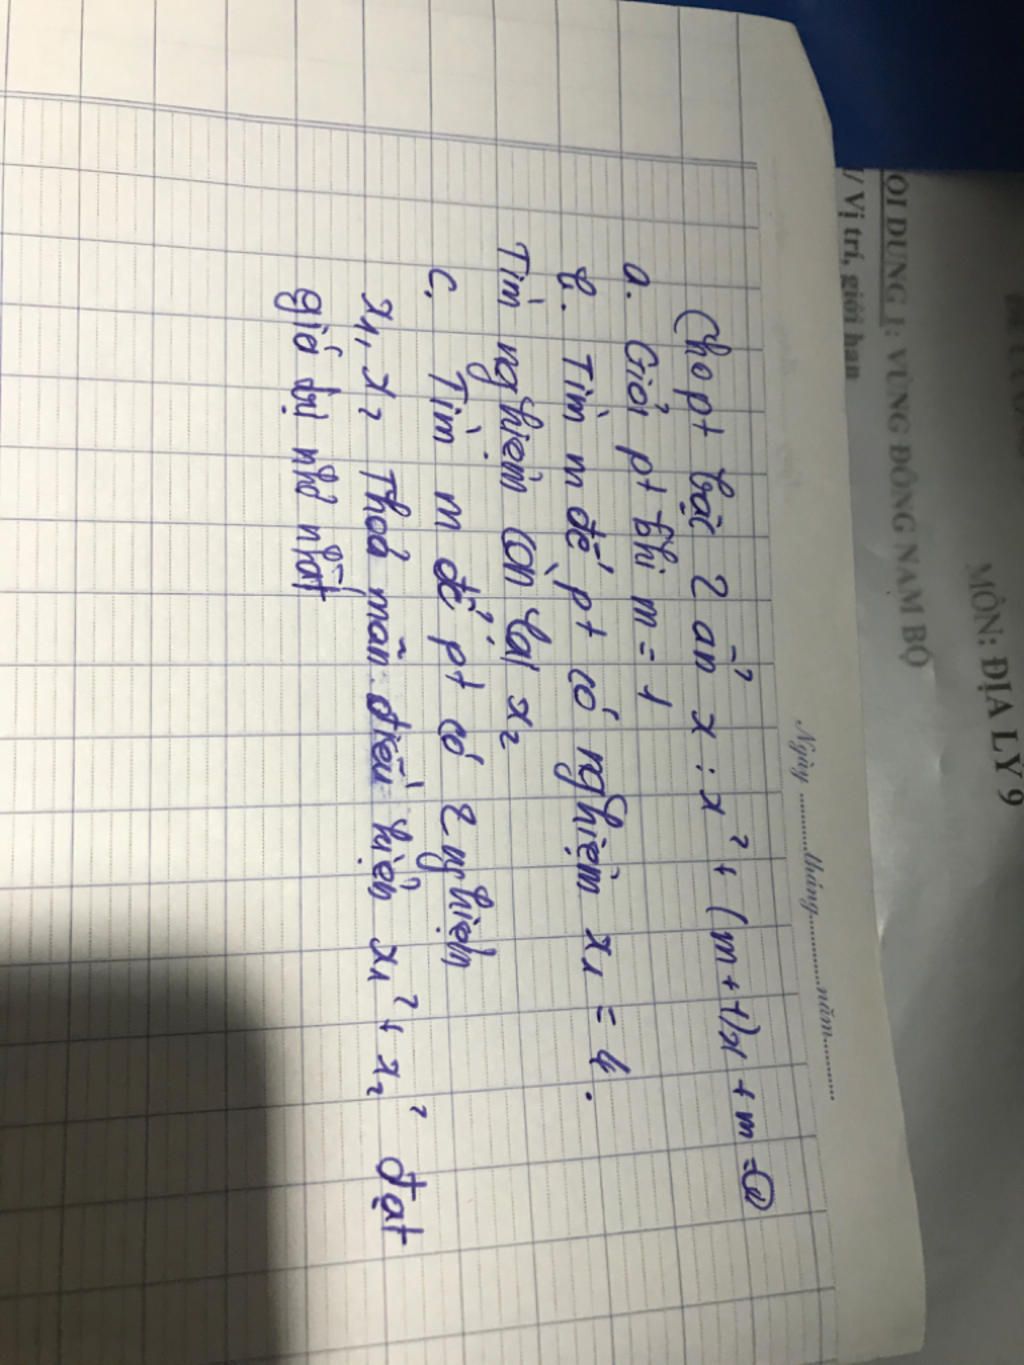 MÔN: ĐỊA LÝ 9
DUNG 1: VÙNG ĐÔNG NAM BỘ
Vị trí, giới hạn
Ngày ............tháng............năm............
Cho pt bậc 2 ẩn x : x² + (m+1)x + m =
a. Giải pt khi m = 1
b. Tìm m để pt có nghiệm x₁ = 4.
Tìm nghiệm còn lại x₂
c. Tìm m để pt có 2 nghiệm
x₁, x₂ thoả mãn điều kiện x₁² + x₂² đạt
giá trị nhỏ nhất